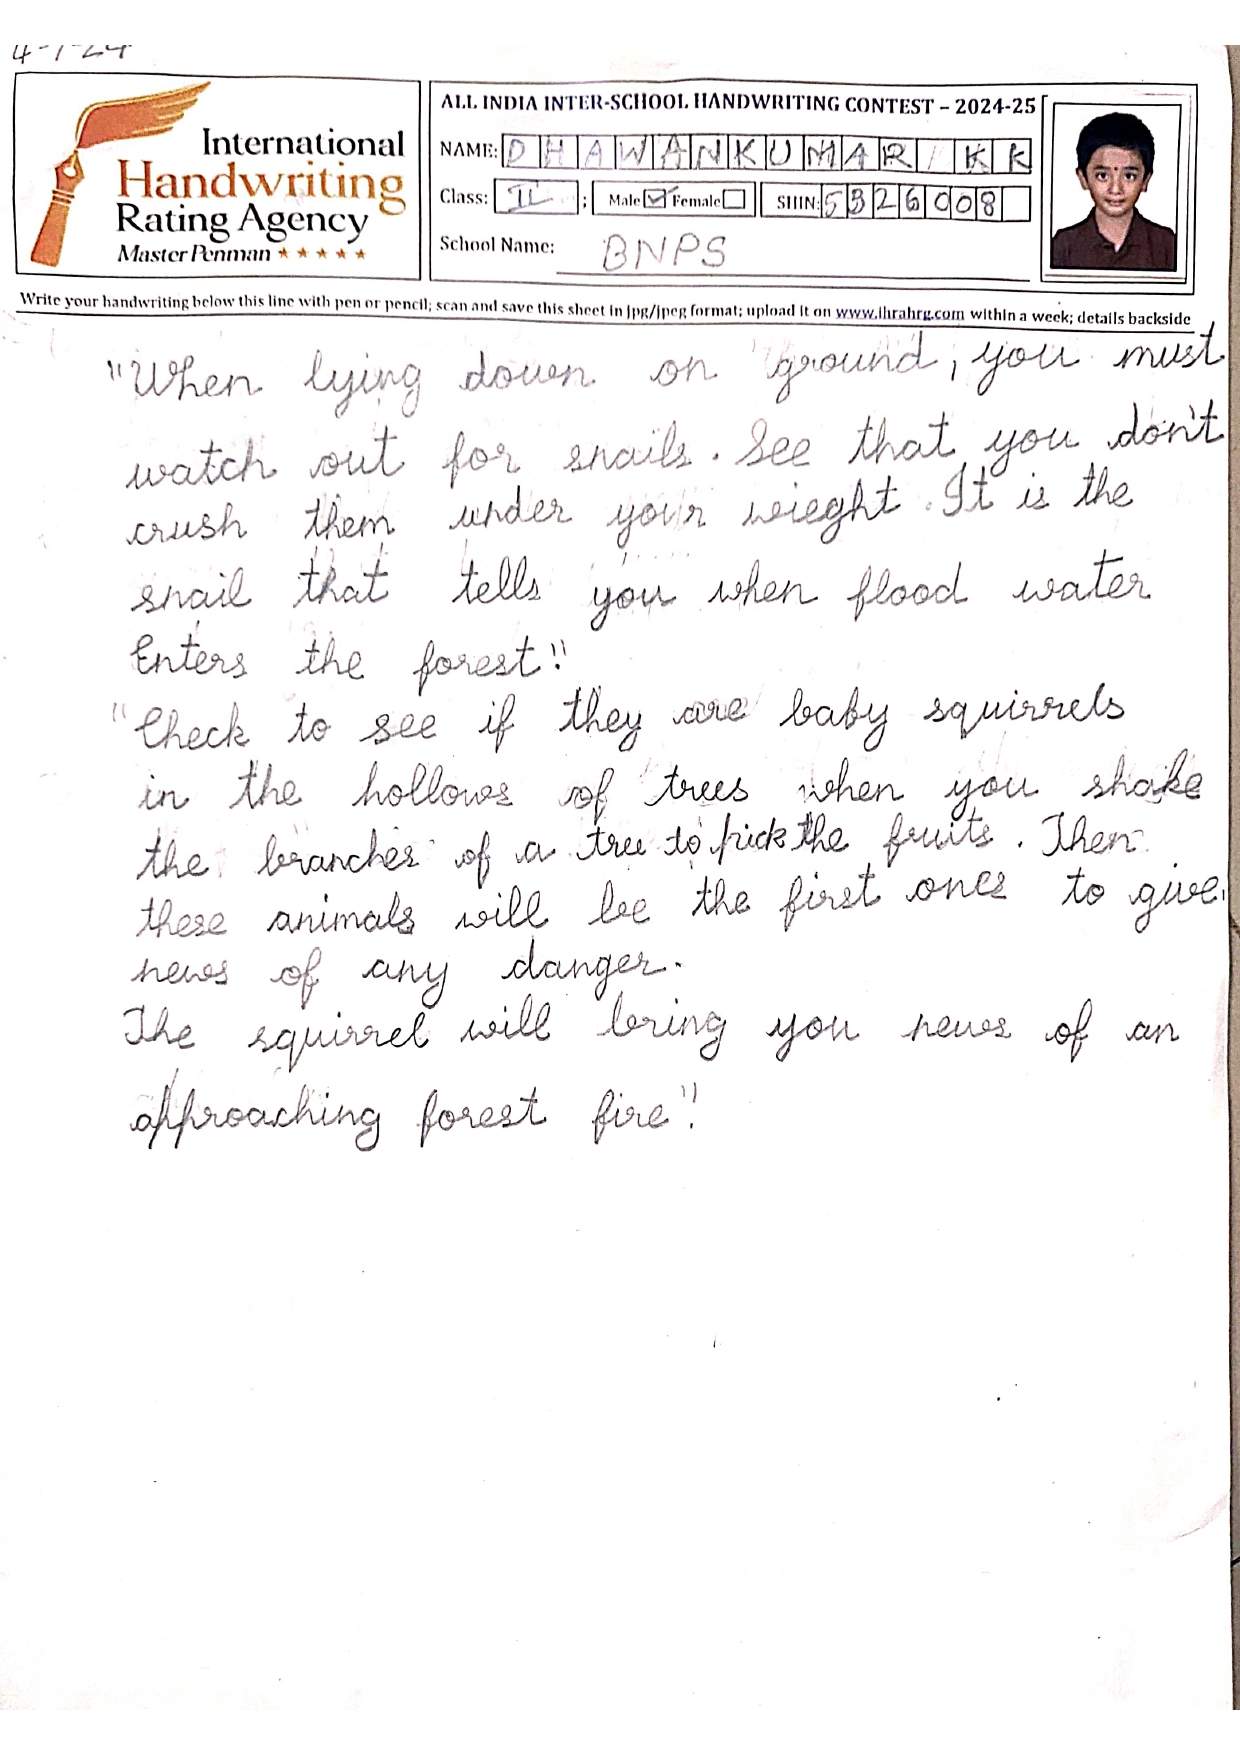 4-7-24
International
Handwriting
Rating Agency
Master Penman ★★★★★
ALL INDIA INTER-SCHOOL HANDWRITING CONTEST – 2024-25
NAME: DHAWANKUMAR KK
Class: II ; Male ☑ Female ☐ SHIN: 5326008
School Name: BNPS
Write your handwriting below this line with pen or pencil; scan and save this sheet in jpg/jpeg format; upload it on www.ihrahrg.com within a week; details backside
"When lying down on ground, you must
watch out for snails. See that you don't
crush them under your wieght. It is the
snail that tells you when flood water
Enters the forest."
"Check to see if they are baby squirrels
in the hollows of trees when you shake
the branches of a tree to pick the fruits. Then
these animals will be the first ones to give
news of any danger.
The squirrel will bring you news of an
approaching forest fire".